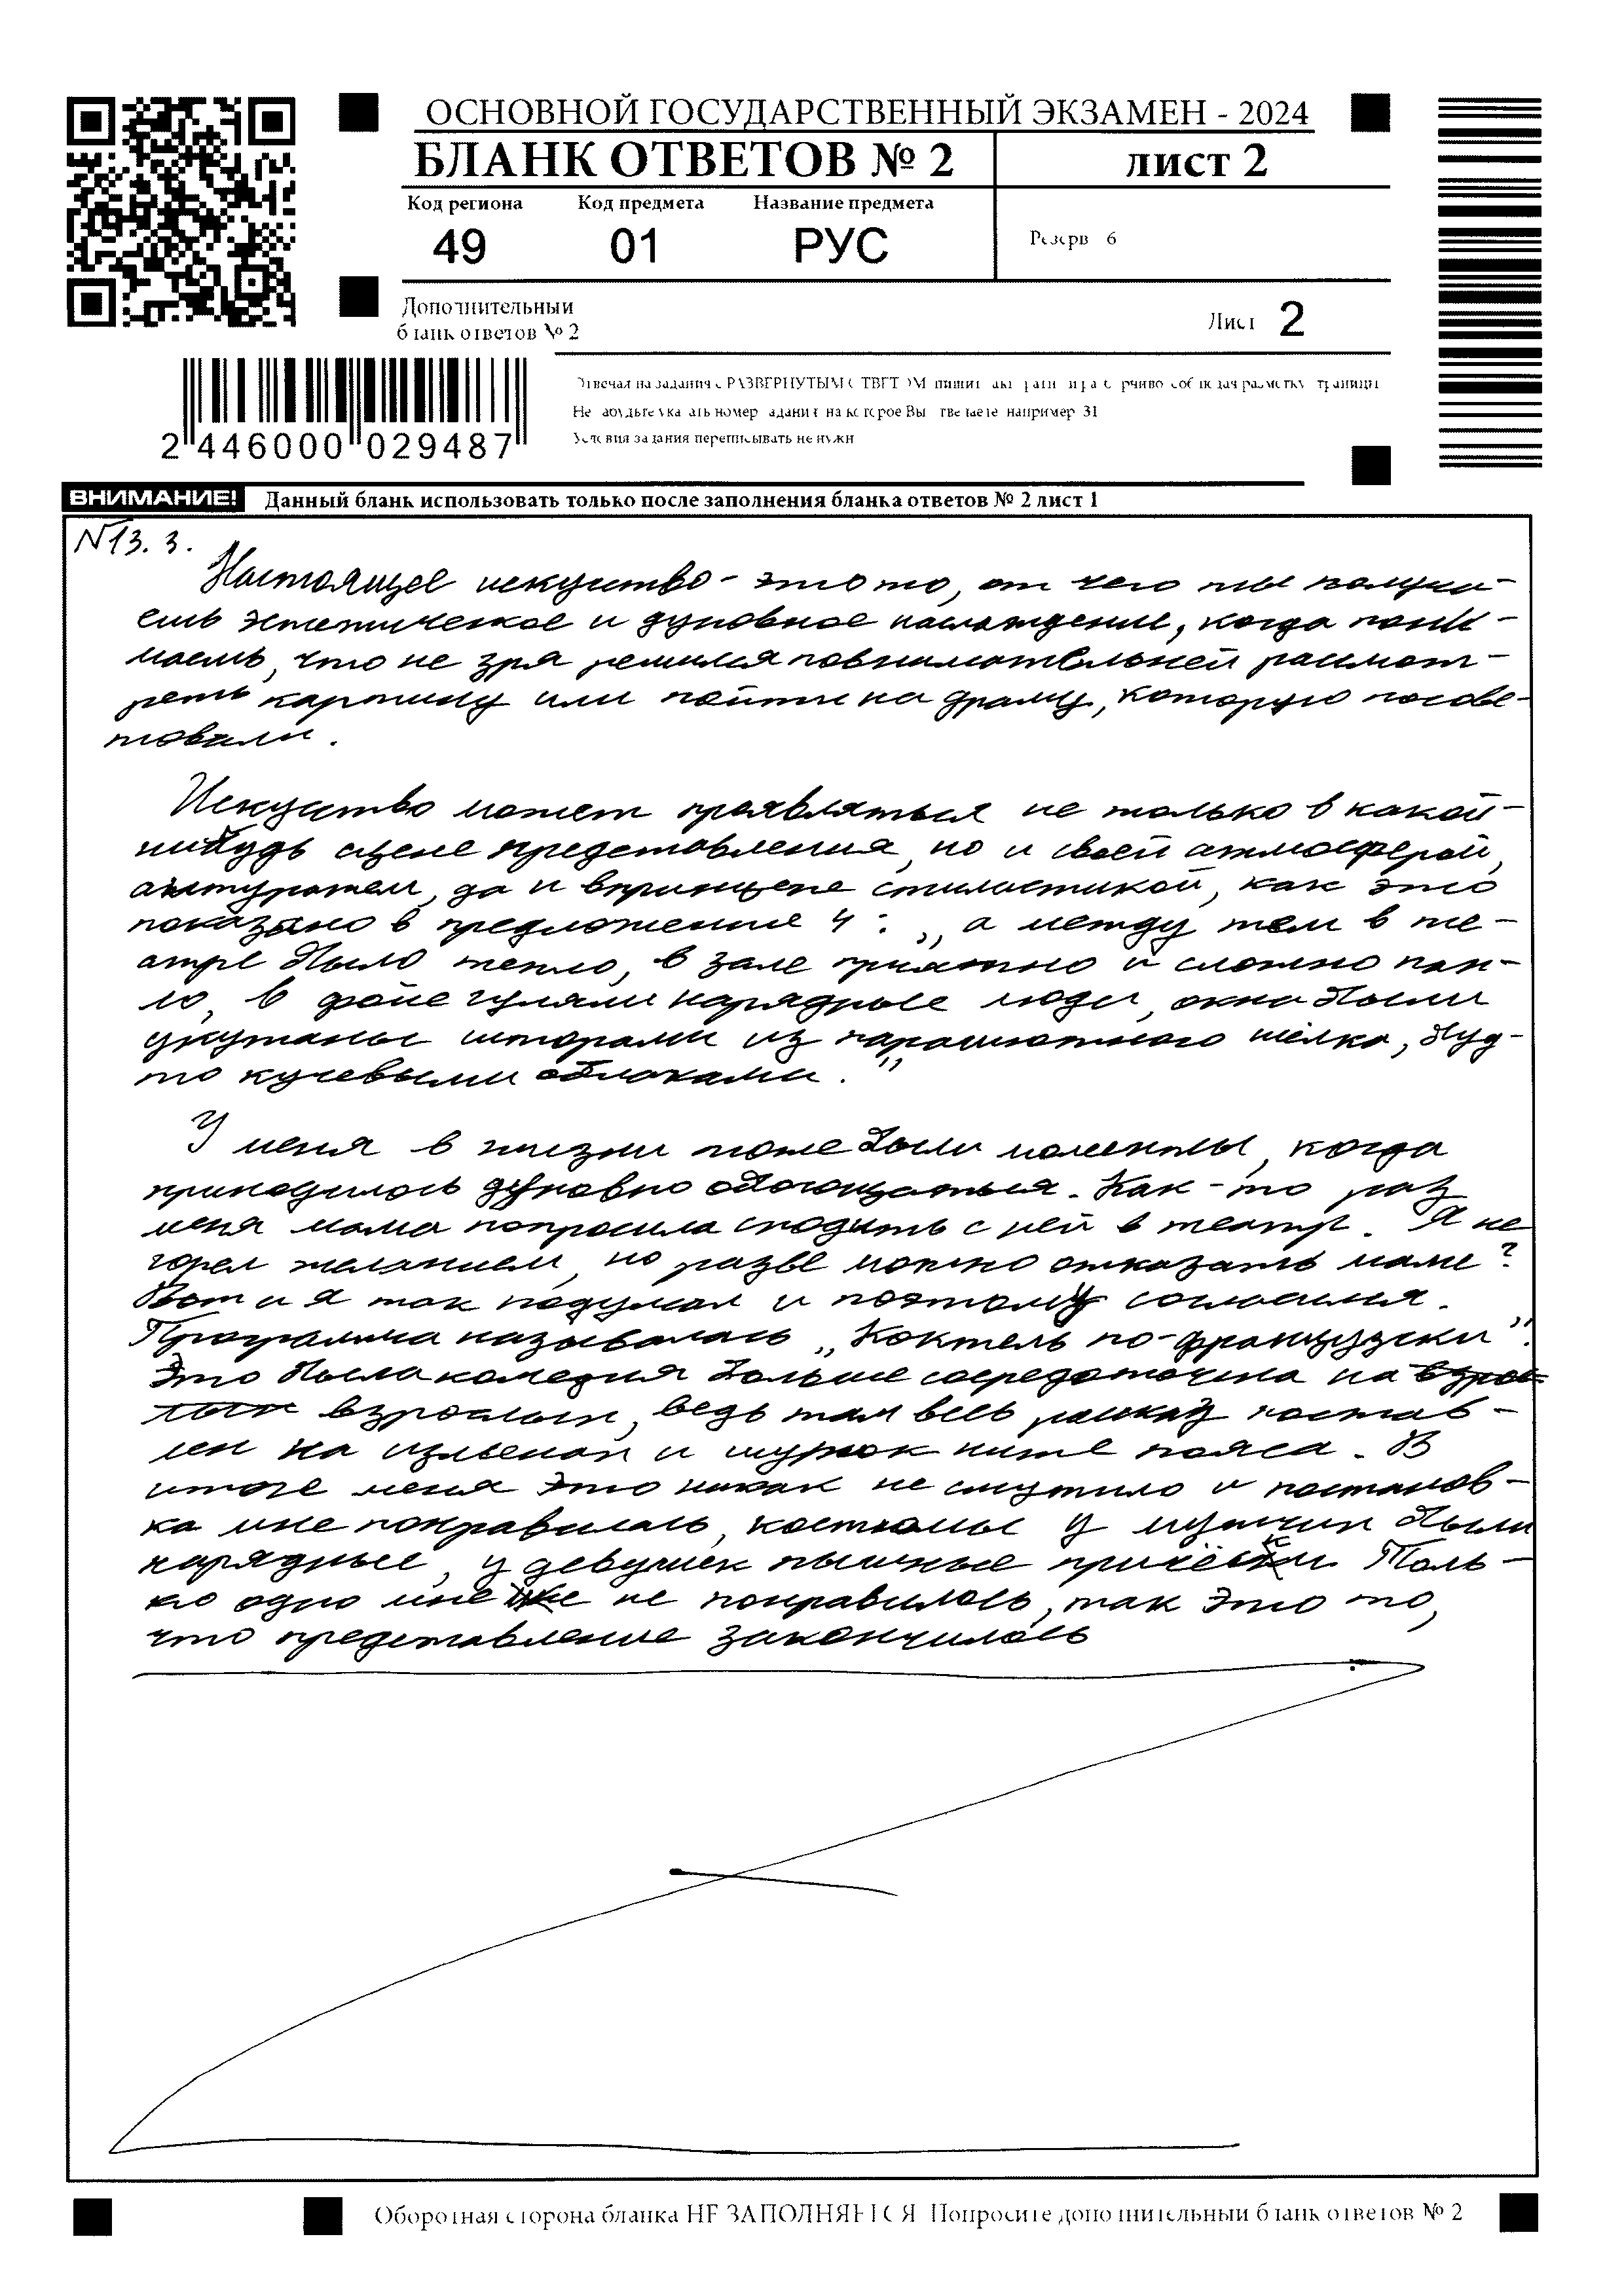 ОСНОВНОЙ ГОСУДАРСТВЕННЫЙ ЭКЗАМЕН - 2024
БЛАНК ОТВЕТОВ № 2
лист 2
Код региона Код предмета Название предмета
49 01 РУС
Резерв 6
Дополнительный
бланк ответов № 2
Лист 2
2 446000 029487
Отвечая на задания с РАЗВЕРНУТЫМ ОТВЕТОМ пишите аккуратно и разборчиво соблюдая разметку страницы
Не забудьте указать номер задания на которое Вы отвечаете например 31
Условия задания переписывать не нужно
ВНИМАНИЕ! Данный бланк использовать только после заполнения бланка ответов № 2 лист 1
N13. 3.
Настоящее искуство - это то, от чего мы получа-
ешь эстетическое и духовное наслождение, когда пони-
маешь, что не зря решился повнимательней рассмот-
реть картину или пойти на драму, которую посове-
товали.
Искуство может проявляться не только в какой-
нибудь сцене представления, но и своей атмосферой,
антуражем, да и впринцепе стилистикой, как это
показано в предложение 4: „а между тем в те-
атре было тепло, в зале приятно и сложно пах-
ло, в фойе гуляли нарядные люди, окна были
укутаны шторами из парашютного шёлка, буд-
то кучевыми облаками."
У меня в жизни тоже были моменты, когда
приходилось духовно обогощаться. Как-то раз
меня мама попросила сходить с ней в театр. Я не
горел желанием, но разве можно отказать маме?
Вот и я так подумал и поэтому согласился.
Программа называлась „Коктель по-французски".
Это была комедия больше сосредоточена на
взрослых, ведь там весь рассказ постав-
лен на изменах и шуток ниже пояса. В
итоге меня это никак не смутило и постанов-
ка мне понравилась, костюмы у мужчин были
нарядные, у девушек пышные причёски. Толь-
ко одно мне не понравилось, так это то,
что представление закончилось
Оборотная сторона бланка НЕ ЗАПОЛНЯЕТСЯ Попросите дополнительный бланк ответов № 2